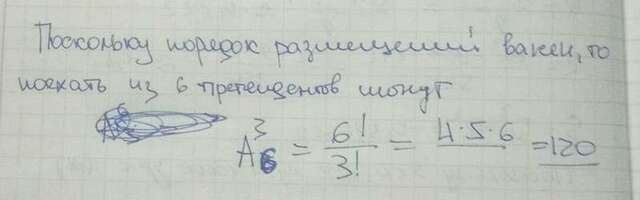 Поскольку порядок размещений важен, то
поехать из 6 претендентов могут
A₆³ = 6!/3! = 4·5·6 = 120